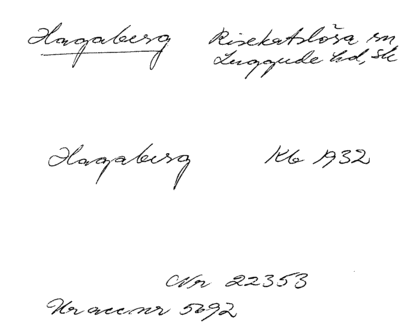 Hagaberg Risekatslösa sn
Luggude hd, Sk
Hagaberg Kb 1932
Nr 22353
Nr acc.nr 5692